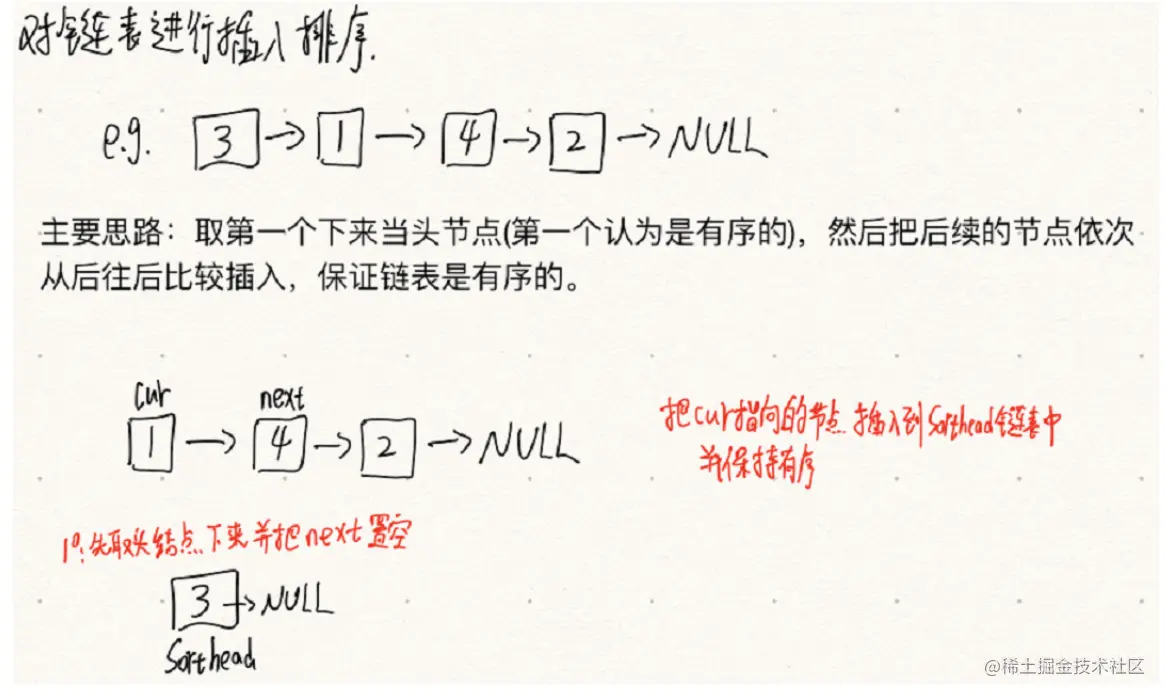 对链表进行插入排序.
e.g. 3 → 1 → 4 → 2 → NULL
主要思路：取第一个下来当头节点(第一个认为是有序的)，然后把后续的节点依次
从后往后比较插入，保证链表是有序的。
cur next
1 → 4 → 2 → NULL
把cur指向的节点插入到Sorthead链表中
并保持有序
1°:先取头结点下来并把next置空
3 → NULL
Sorthead
@稀土掘金技术社区